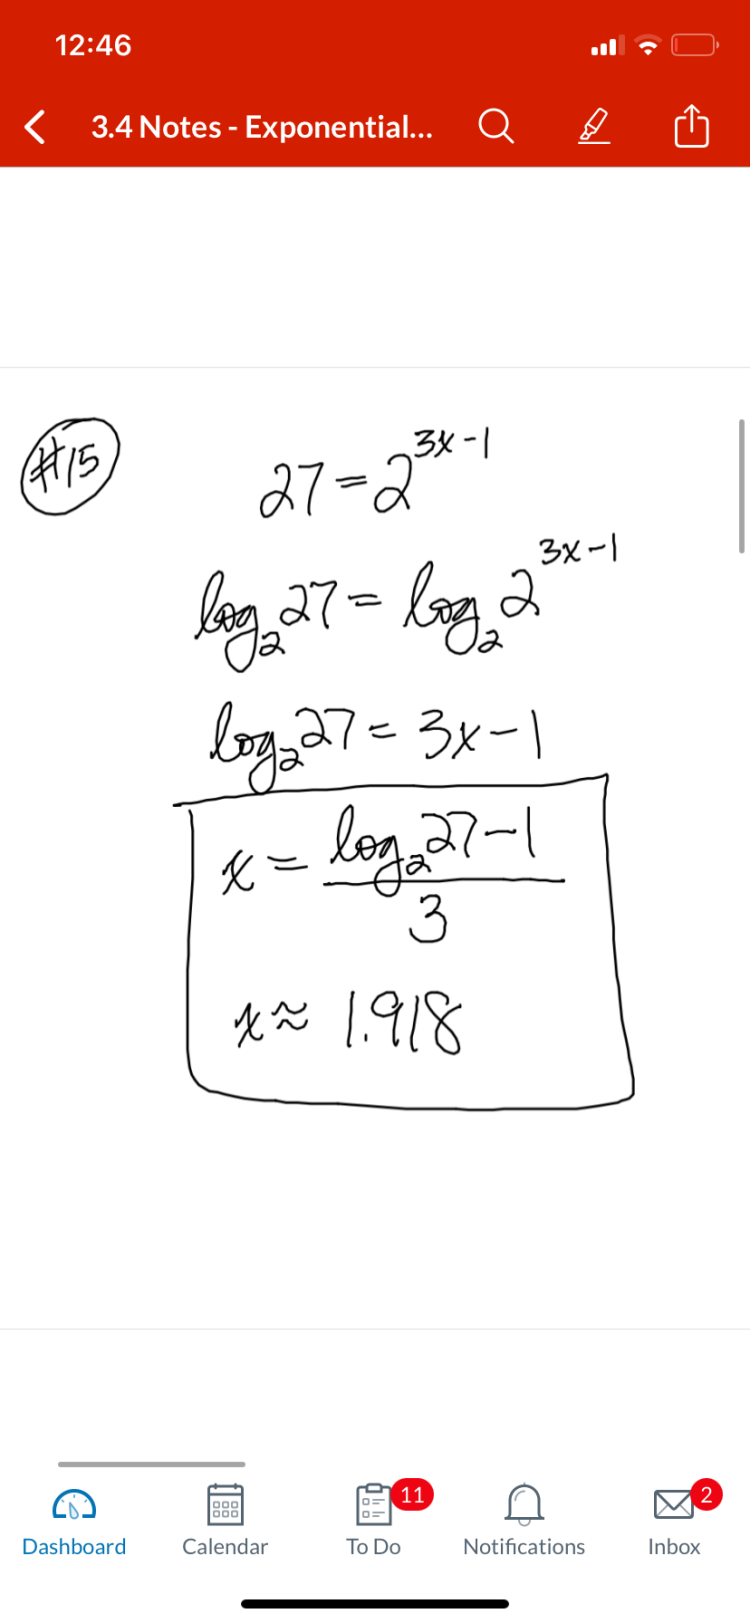 12:46
3.4 Notes - Exponential...
#15
27 = 2^(3x-1)
log₂27 = log₂2^(3x-1)
log₂27 = 3x-1
x = (log₂27-1)/3
x ≈ 1.918
11
2
Dashboard
Calendar
To Do
Notifications
Inbox